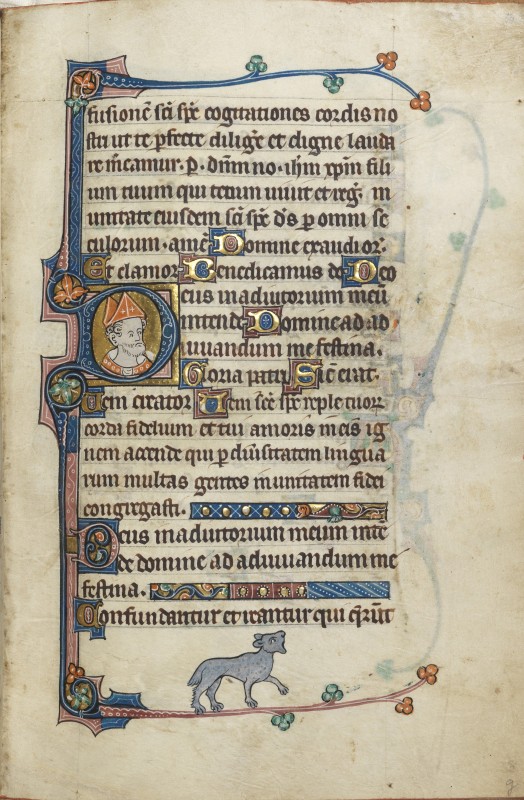 fusionē scī spē cogitationes cordis no
stri ut te pfecte diligē et digne lauda
re m̄camur. P. dnm no. ihm xpm fili
um tuum qui tecum uiuit et reg̃. in
unitate eiusdem scī spē ds p omni se
culorum. amē Domine exaudi or̃.
Et clamor. Benedicamus do Deo
Deus in adiutorium meū
intende. Domine ad ad
iuuandum me festina.
Gloria patri Sic̃ erat.
Ueni creator Ueni scē spē reple tuoꝝ
corda fidelium et tui amoris in eis ig
nem accende qui p diūsitatem lingua
rum multas gentes in unitatem fidei
congregasti.
Deus in adiutorium meum inte
de domine ad adiuuandum me
festina.
Confundantur et reantur qui q̄rūt